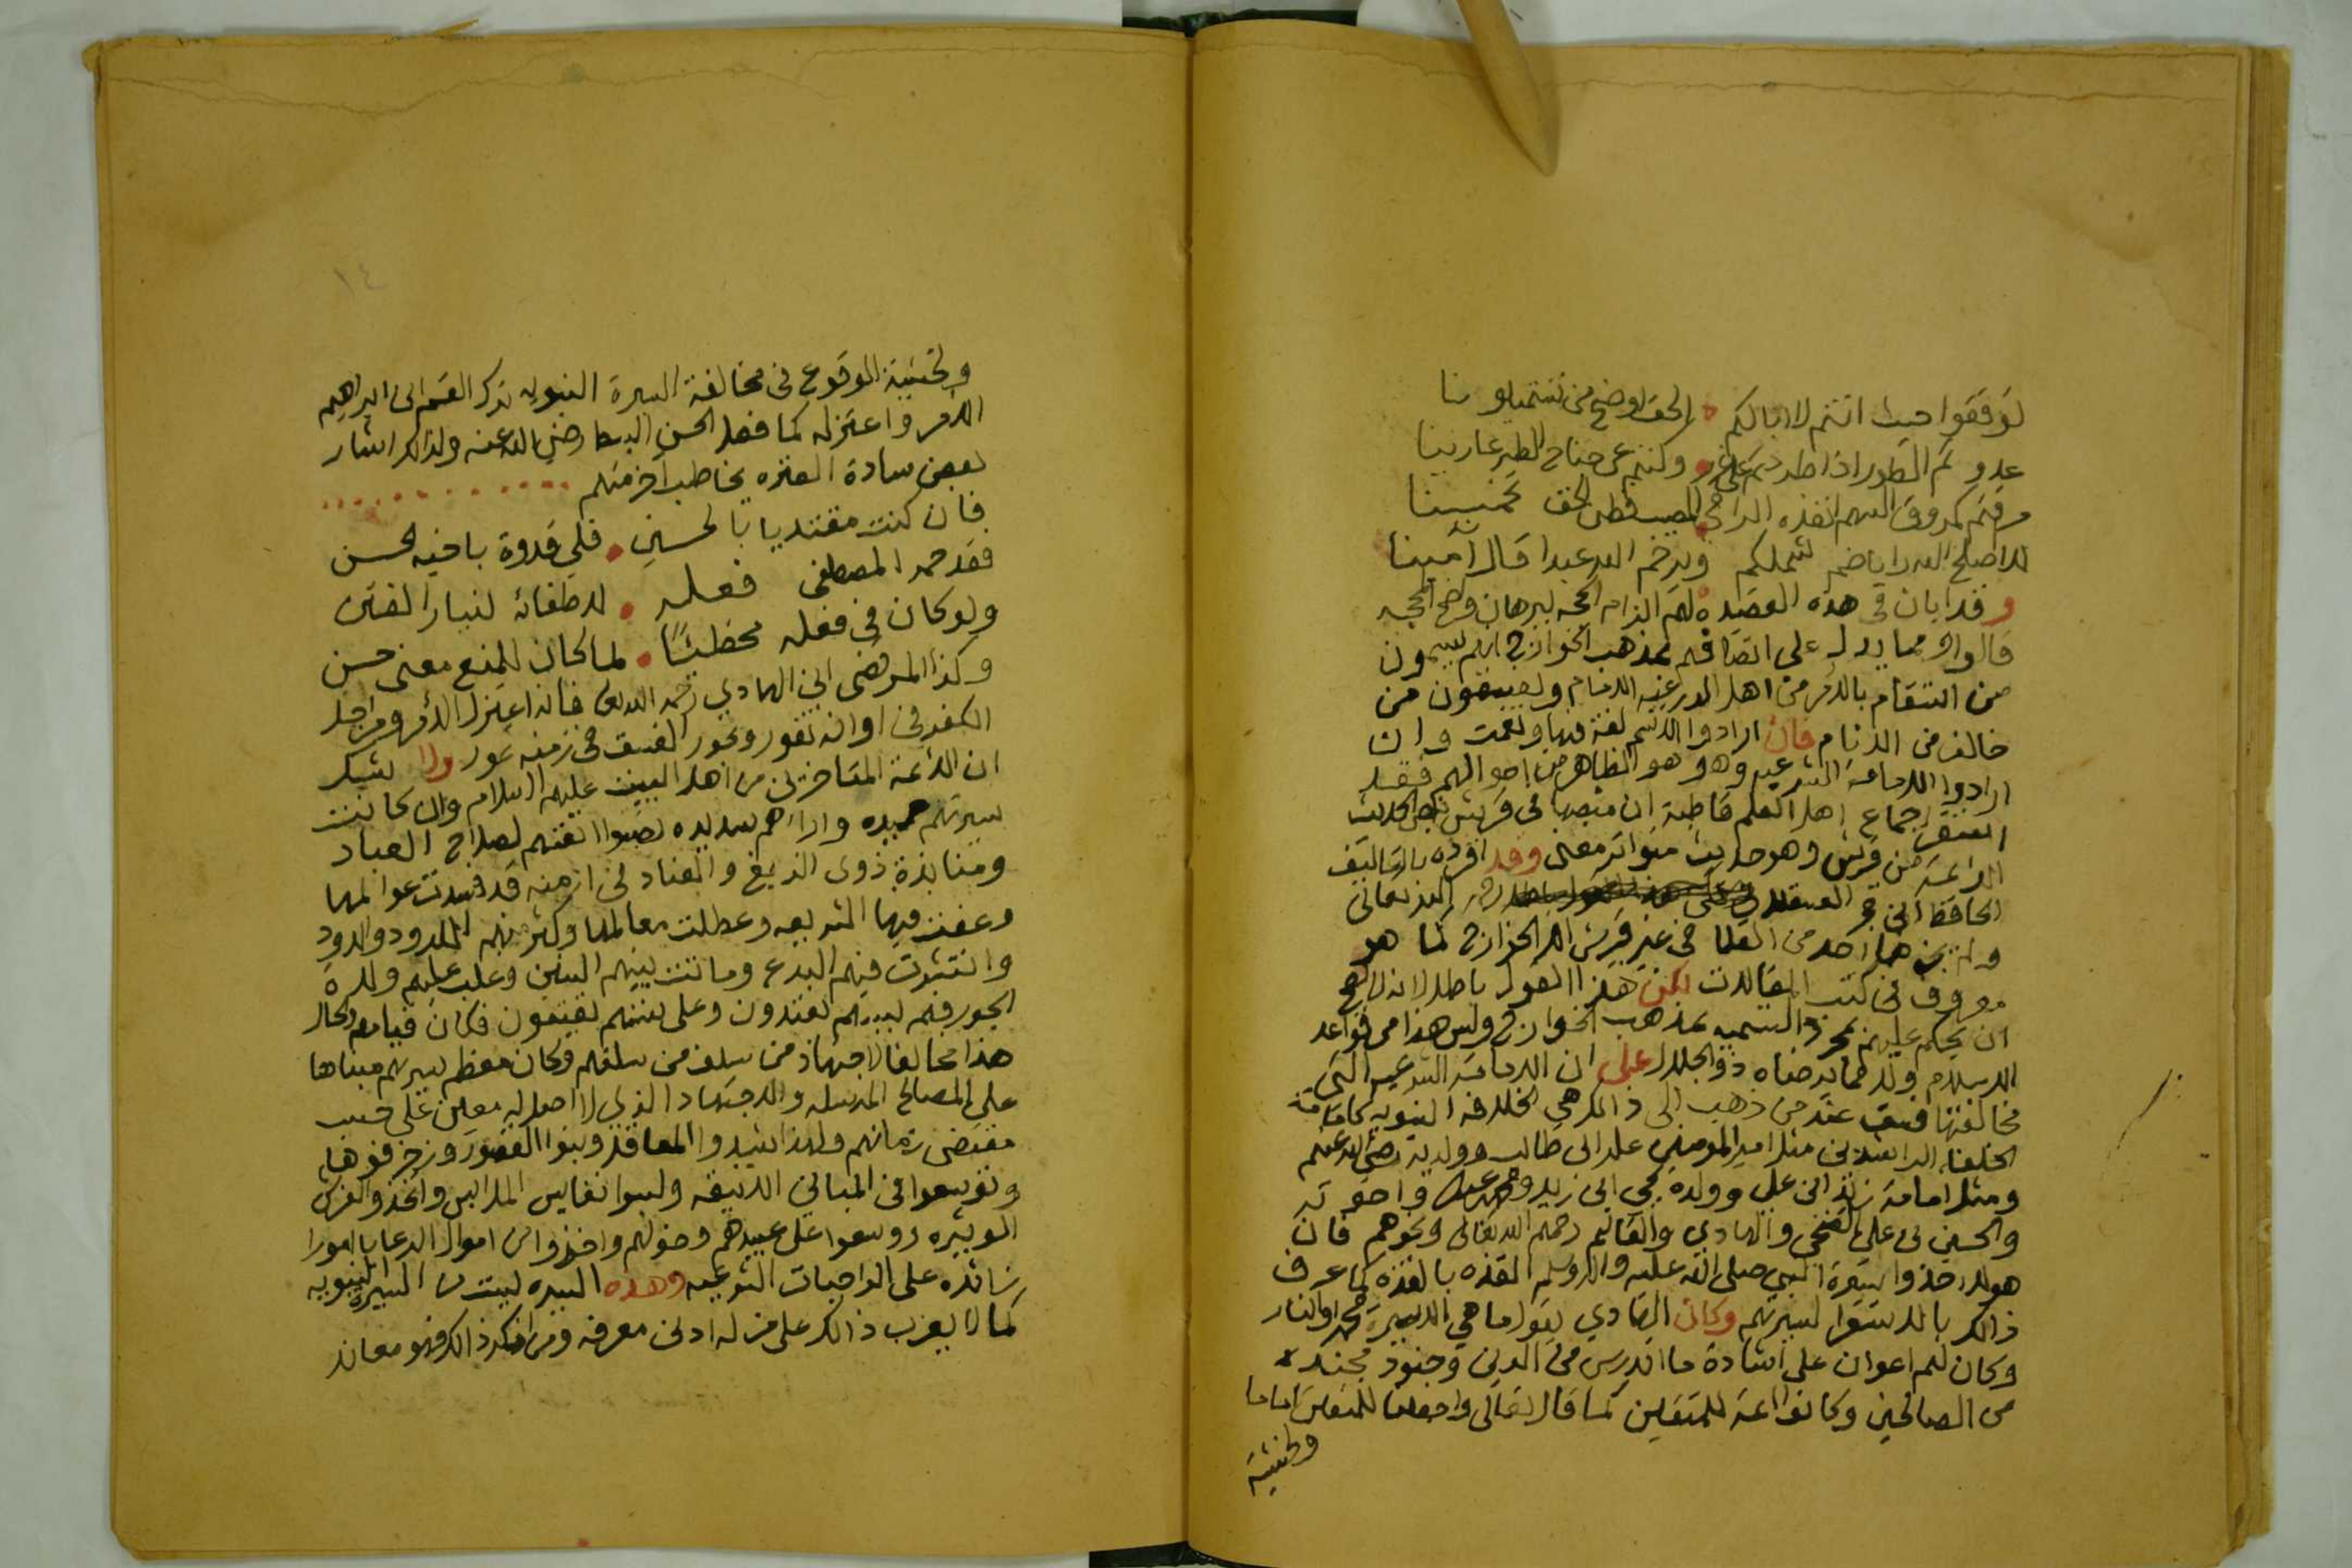 لو فقفوا حيث انتم لا ابا لكم الحق اوضح من
عدوتم الطور اذا طرتم على وكنتم عن جناح الطير عارينا
مرقتم كمروق السهم انفذه الرامي
لا اصلح الله راياضم شملكم ويرحم الله عبدا قال آمينا
وقد ابان في هذه القصيدة لهم الزام الحجه ببرهان واضح المحجه
قالوا ومما يدل على اتصافهم بمذهب الخوارج انهم يسمون
من استقام بالأمر من اهل الدرعيه الامام ويعيبون من
خالف من الانام فان ارادوا الاسم لغة فيها ونعمت وان
ارادوا الامامة الشرعيه وهو هو الظاهر من احوالهم فقد
انعقد اجماع اهل العلم قاطبة ان منصبها في قريش بنص الحديث
الائمة من قريش وهو حديث متواتر معنى وقد افرده بالتاليف
الحافظ ابن حجر العسقلاني رحمه الله تعالى
ولم يجوزها احد من العلما في غير قريش الا الخوارج كما هو
معروف في كتب المقالات لكن هذا القول باطل لانه لا يصح
ان يحكم عليهم بمجرد التسميه بمذهب الخوارج وليس هذا من قواعد
الاسلام ولا مما يرضاه ذو الجلال على ان الامامة الشرعيه التي
مخالفتها فسق عند من ذهب الى ذالك هي الخلافه النبويه كامامة
الخلفا الراشدين مثل امير المومنين علي ابن ابي طالب وولديه رضي الله عنهم
ومثل امامة زيد ابن علي وولده يحيى ابن زيد ومحمد ابن عبد الله واخوته
والحسين بن علي الفخي والهادي والقاسم رحمهم الله تعالى ونحوهم فان
هولا حذوا سيرة النبي صلى الله عليه واله وسلم القذه بالقذه كما عرف
ذالك بالاستقرا لسيرتهم وكان الهادي يقول ما هي الا سيرة محمد او النار
وكان لهم اعوان على اشادة ما اندرس من الدين وجنود مجنده
من الصالحين وكانوا ائمة للمتقين كما قال تعالى واجعلنا للمتقين اماما
ولخشية
ولخشية الوقوع في مخالفة السيرة النبويه ترك القسم ابن ابراهيم
الأمر واعتزله كما فعل الحسن السبط رضي الله عنه ولذالك اشار
بعض سادة العتره يخاطب اخر منهم
فان كنت مقتديا بالحسين فلي قدوة باخيه الحسن
فقد حمد المصطفى فعله لاطفائه لنيار الفتن
ولو كان في فعله مخطئا لما كان للمنع معنى حسن
وكذا المرتضى ابن الهادي رحمه الله تعالى فانه اعتزل الأمر ومراجل
الكفر في اوانه تفور وبحور الفسق في زمنه تمور ولا يشك
ان الأئمة المتاخرين من اهل البيت عليهم السلام وان كانت
سيرتهم حميده وارائهم سديده نصبوا انفسهم لصلاح العباد
ومنابذة ذوي الزيغ والعناد في ازمنه قد فسدت عوالمها
وعفت فيها الشريعه وعطلت معالمها وكثر منهم اللدود والردود
وانتشرت فيهم البدع وماتت بينهم السنن وغلب عليهم ولاة
الجور فهم بسيرتهم يقتدون وعلى سننهم يقتفون فكان قيامهم والحال
هذا مخالفا لاجتهاد من سلف من سلفهم وكان معظم سيرتهم مبناها
على المصالح المرسله والاجتهاد الذي لا اصل له معين على حسب
مقتضى زمانهم ولهذا شيدوا المعاقل وبنوا القصور وزخرفوها
وتوسعوا في المباني الانيقه ولبسوا نفايس الملابس واتخذوا الفرش
الوثيره ووسعوا على عبيدهم وخولهم واخذوا من اموال الرعايا امورا
زائده على الواجبات الشرعيه وهذه السيره ليست من السيرة النبويه
كما لا يعزب ذالك على من له ادنى معرفه ومن انكر ذالك فهو معاند
١٤